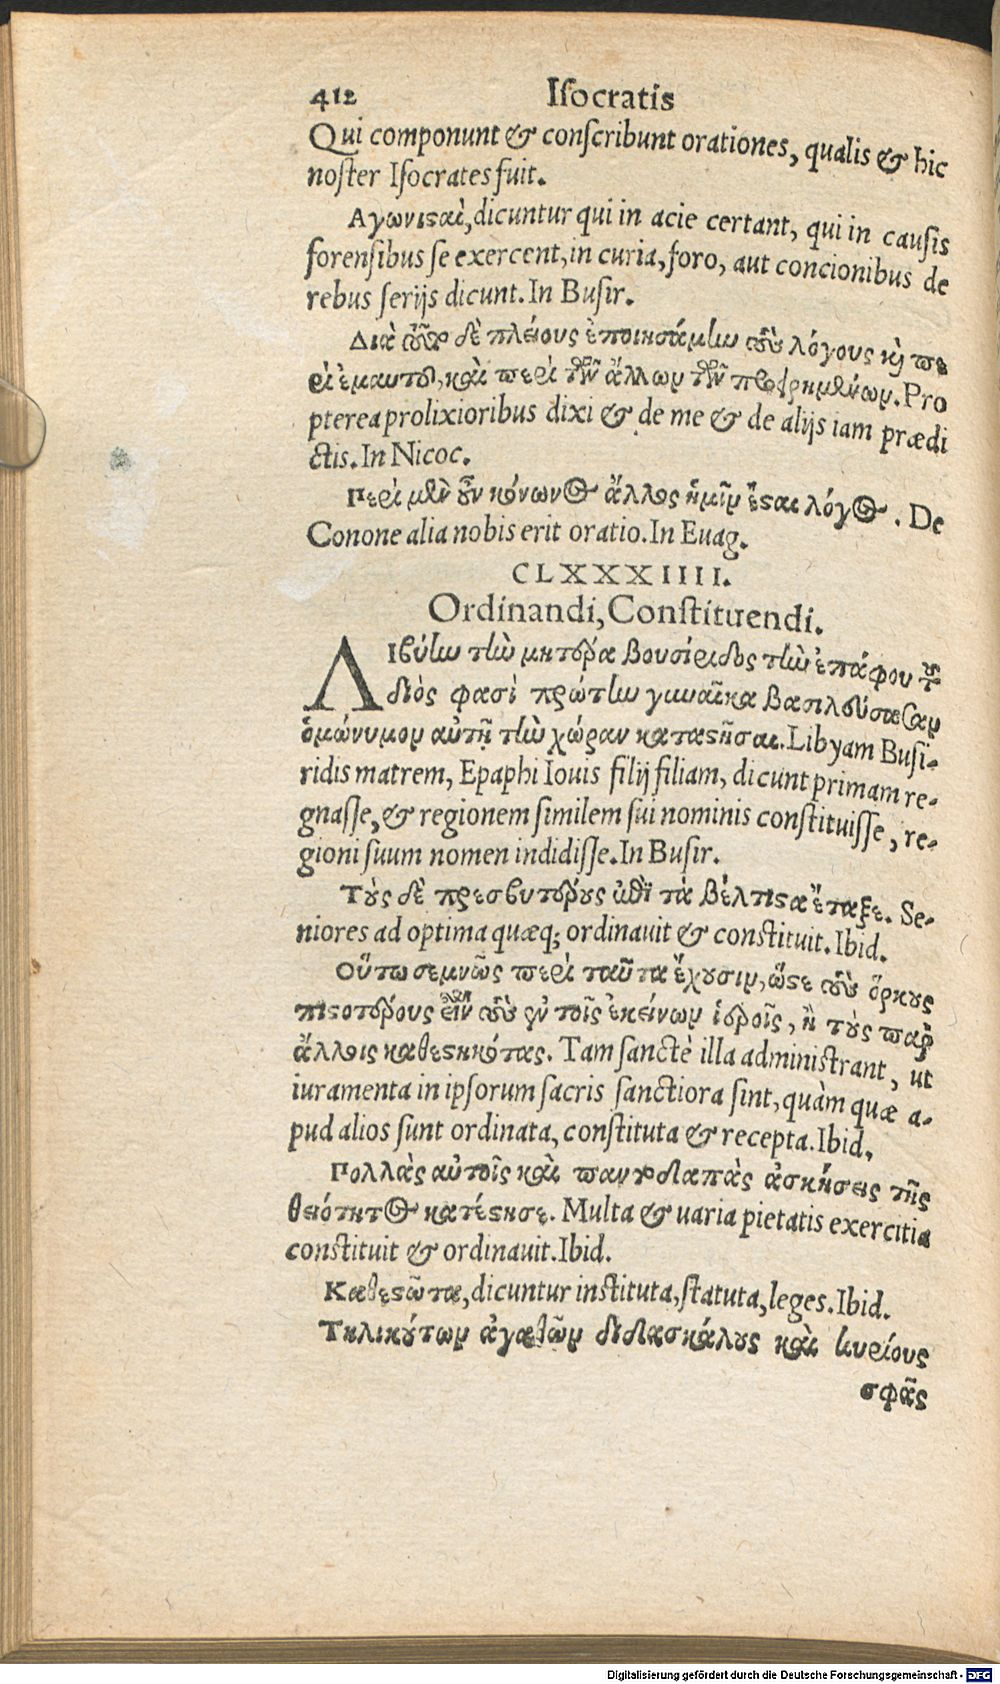 412 Iſocratis
Qui componunt & conſcribunt orationes, qualis & hic
noſter Iſocrates fuit.
Αγωνιϛαὶ, dicuntur qui in acie certant, qui in cauſis
forenſibus ſe exercent, in curia, foro, aut concionibus de
rebus ſerijs dicunt. In Buſir.
Διὰ τοῦτο δὲ πλείους ἐποιησάμην τοὺς λόγους καὶ πε
ρὶ ἐμαυτοῦ, καὶ περὶ τῶν ἄλλων τῶν προειρημένων. Pro
pterea prolixioribus dixi & de me & de alijs iam prædi
ctis. In Nicoc.
Περὶ μὲν οὖν κόνωνος ἄλλος ἡμῖν ἔϛαι λόγος. De
Conone alia nobis erit oratio. In Euag.
CLXXXIIII.
Ordinandi, Conſtituendi.
ΛΙβύην τὴν μητέρα βουσίριδος τὴν ἐπάφου τοῦ
διός φασὶ πρώτην γυναῖκα βασιλεύσασαν
ὁμώνυμον αὐτῇ τὴν χώραν καταϛῆσαι. Libyam Buſi-
ridis matrem, Epaphi Iouis filij filiam, dicunt primam re-
gnaſſe, & regionem ſimilem ſui nominis conſtituiſſe, re-
gioni ſuum nomen indidiſſe. In Buſir.
Τοὺς δὲ πρεσβυτέρους ἐπὶ τὰ βέλτιϛα ἔταξε. Se-
niores ad optima quæq; ordinauit & conſtituit. Ibid.
Οὕτω σεμνῶς περὶ ταῦτα ἔχουσιν, ὥϛε τοὺς ὅρκους
πιϛοτέρους εἶναι τοὺς ἐν τοῖς ἐκείνων ἱεροῖς, ἢ τοὺς παρ'
ἄλλοις καθεϛηκότας. Tam ſanctè illa adminiſtrant, ut
iuramenta in ipſorum ſacris ſanctiora ſint, quàm quæ a-
pud alios ſunt ordinata, conſtituta & recepta. Ibid.
Πολλὰς αὐτοῖς καὶ παντοδαπὰς ἀσκήσεις τῆς
θειότητος κατέϛησε. Multa & uaria pietatis exercitia
conſtituit & ordinauit. Ibid.
Καθεϛῶτα, dicuntur inſtituta, ſtatuta, leges. Ibid.
Τηλικούτων ἀγαθῶν διδασκάλους καὶ κυρίους
σφᾶς
Digitalisierung gefördert durch die Deutsche Forschungsgemeinschaft - DFG